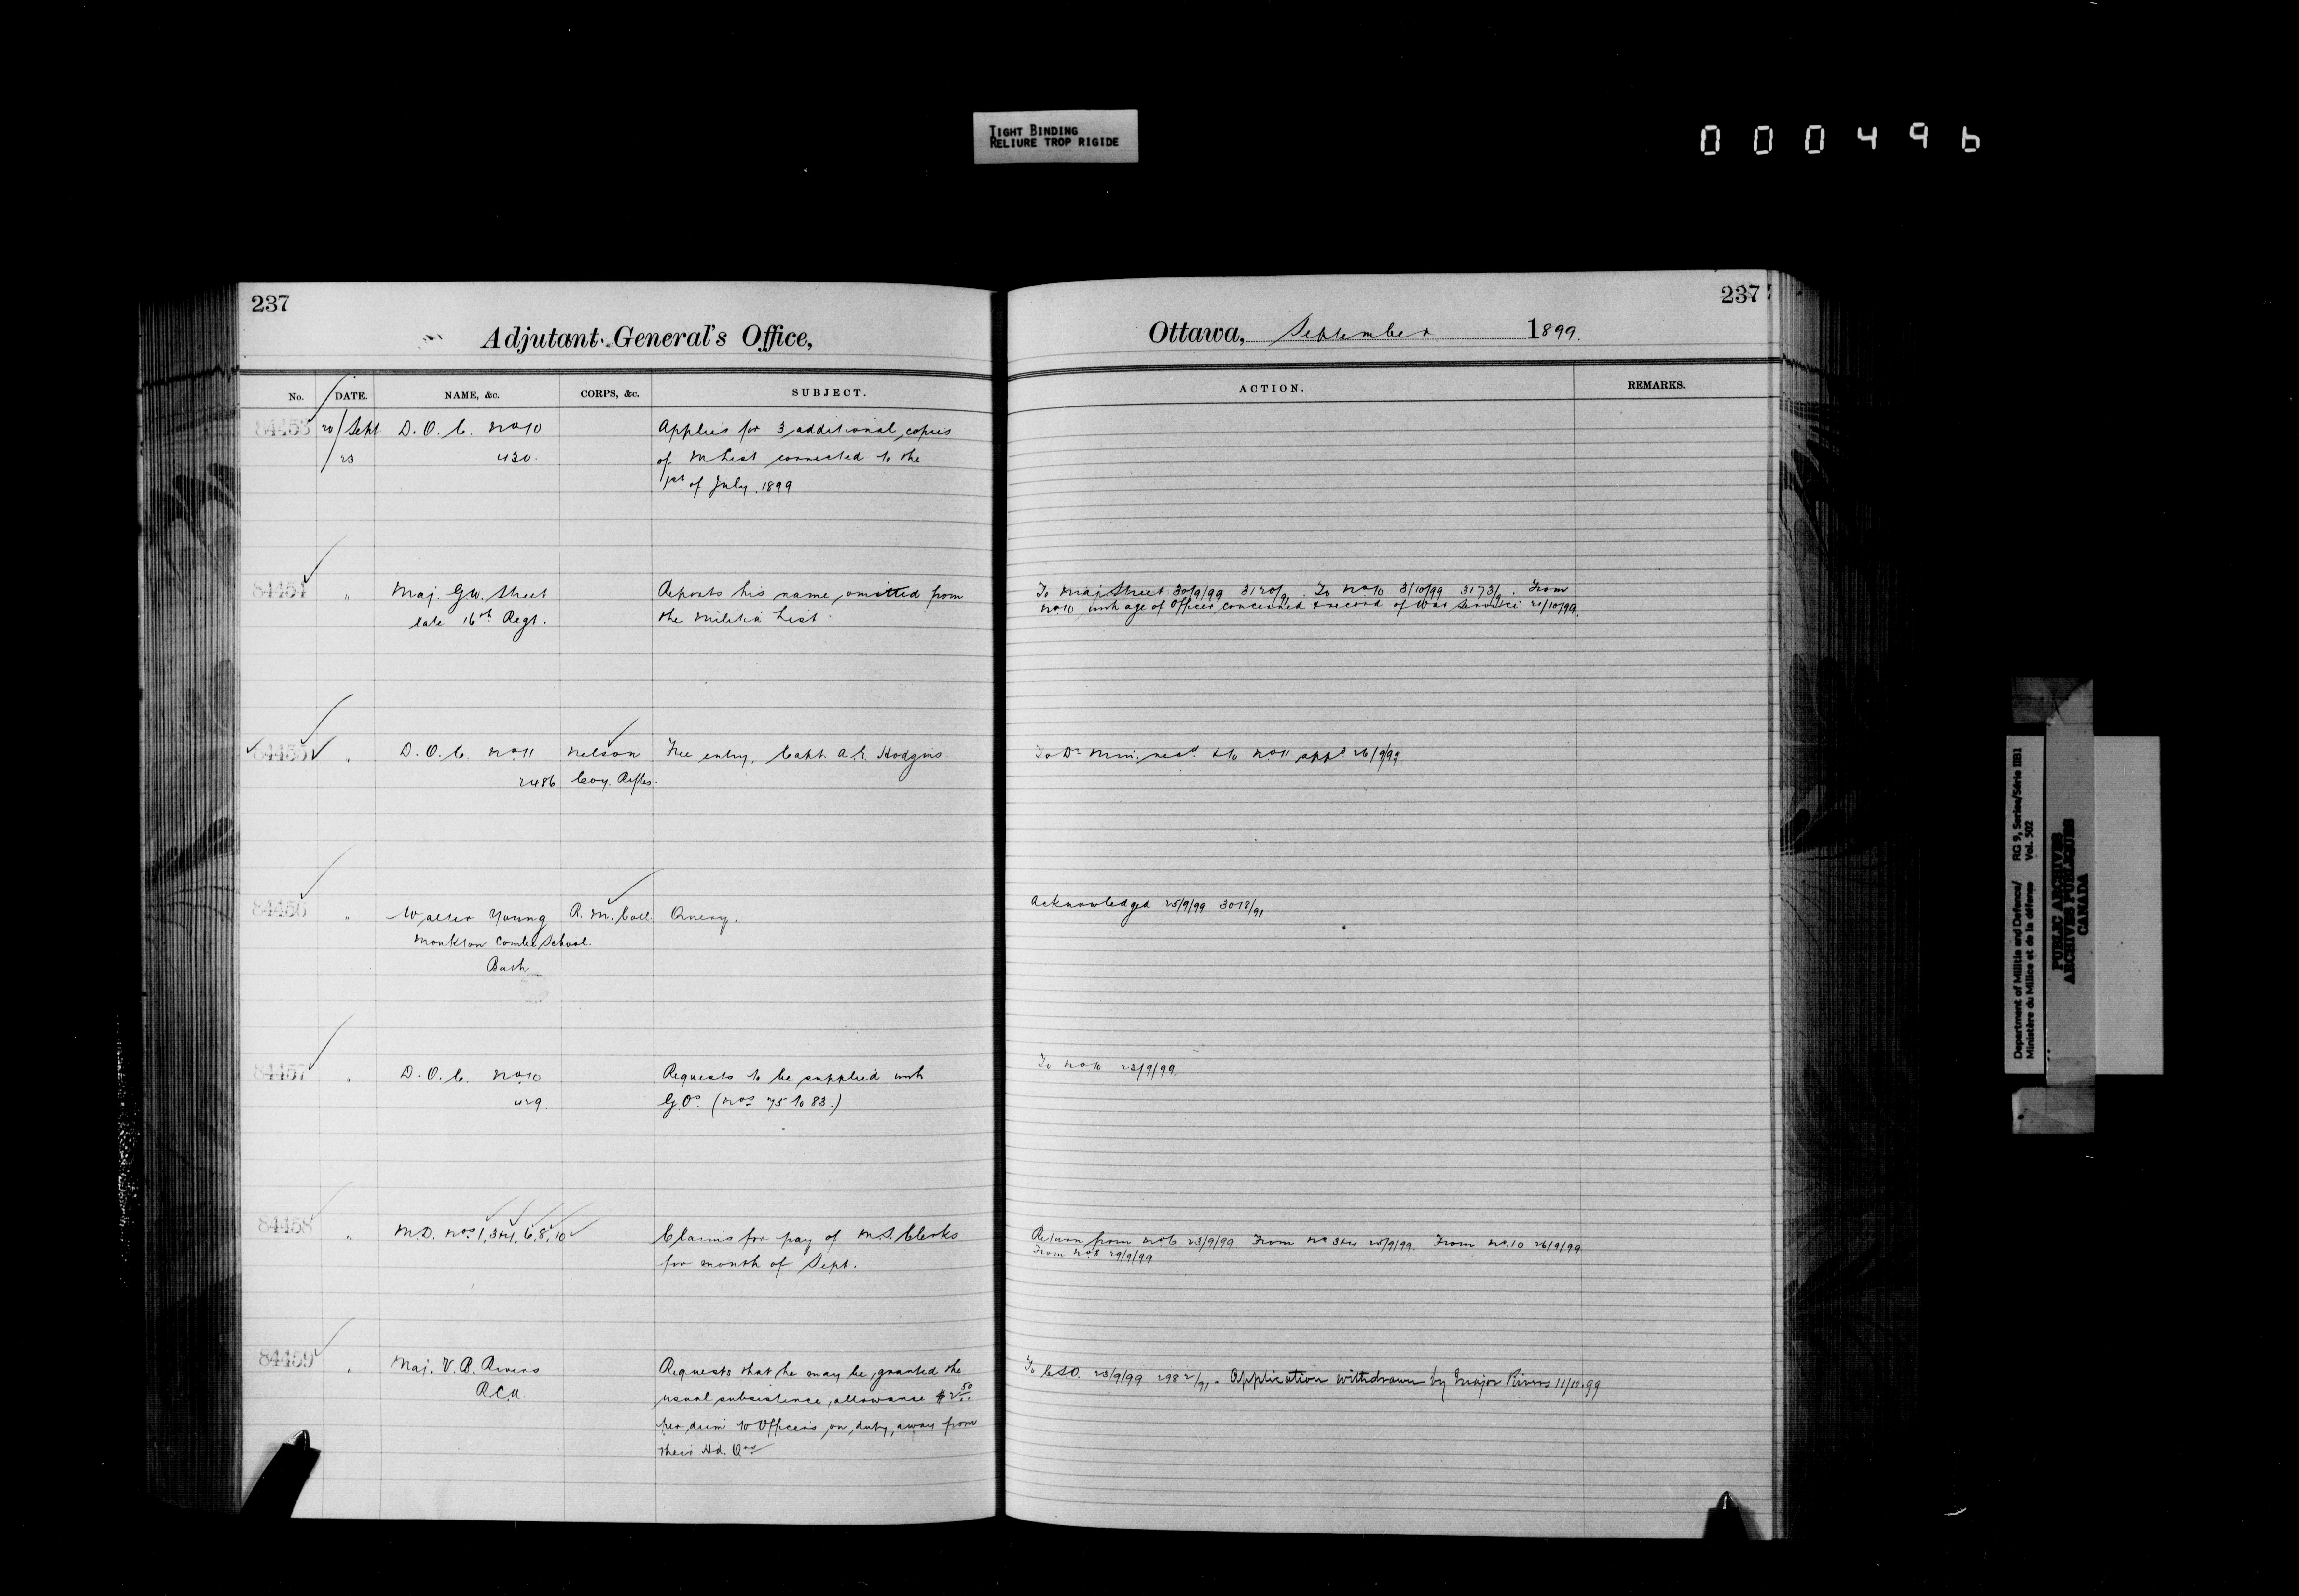 TIGHT BINDING
RELIURE TROP RIGIDE
000496
237
Adjutant-General's Office,
No. DATE. NAME, &c. CORPS, &c. SUBJECT.
84453 20/Sept D. O. C. No 10 Applies for 3 additional copies
/23 430. of M List corrected to the
1st of July. 1899
84454 " Maj. G.W. Street Reports his name omitted from
late 16th Regt. the Militia List.
84455 " D. O. C. No 11 Nelson Free entry, Capt. A.E. Hodgins
2486 Coy. Rifles.
84456 " Walter Young R. M. Coll. Query.
Monkton Combe School.
Bath
84457 " D. O. C. No 10 Requests to be supplied with
429. G.Os. (Nos 75 to 83.)
84458 " M.D. Nos 1, 3&4, 6, 8, 10 Claims for pay of M.S. Clerks
for month of Sept.
84459 " Maj. V. B. Rivers Requests that he may be granted the
R.C.A. usual subsistence allowance $2.50
per diem to Officers on duty away from
their Hd. Qrs
237
Ottawa, September 1899.
ACTION. REMARKS.
To Maj Street 30/9/99 3120/9. To No 10 3/10/99 3173/9. From
No 10 with age of Officer concerned & record of War Service 21/10/99.
To D. Min. recd. & to No 11 appd 26/9/99
Acknowledged 25/9/99 3018/91
To No 10 23/9/99.
Return from No 6 23/9/99 From No 3&4 25/9/99. From No. 10 26/9/99
From No 8 29/9/99
To C.S.O. 23/9/99 2982/91. Application withdrawn by Major Rivers 11/10.99
Department of Militia and Defence/ RG 9, Series/Série IIB1
Ministère du Milice et de la défense Vol. 502
PUBLIC ARCHIVES
ARCHIVES PUBLIQUES
CANADA